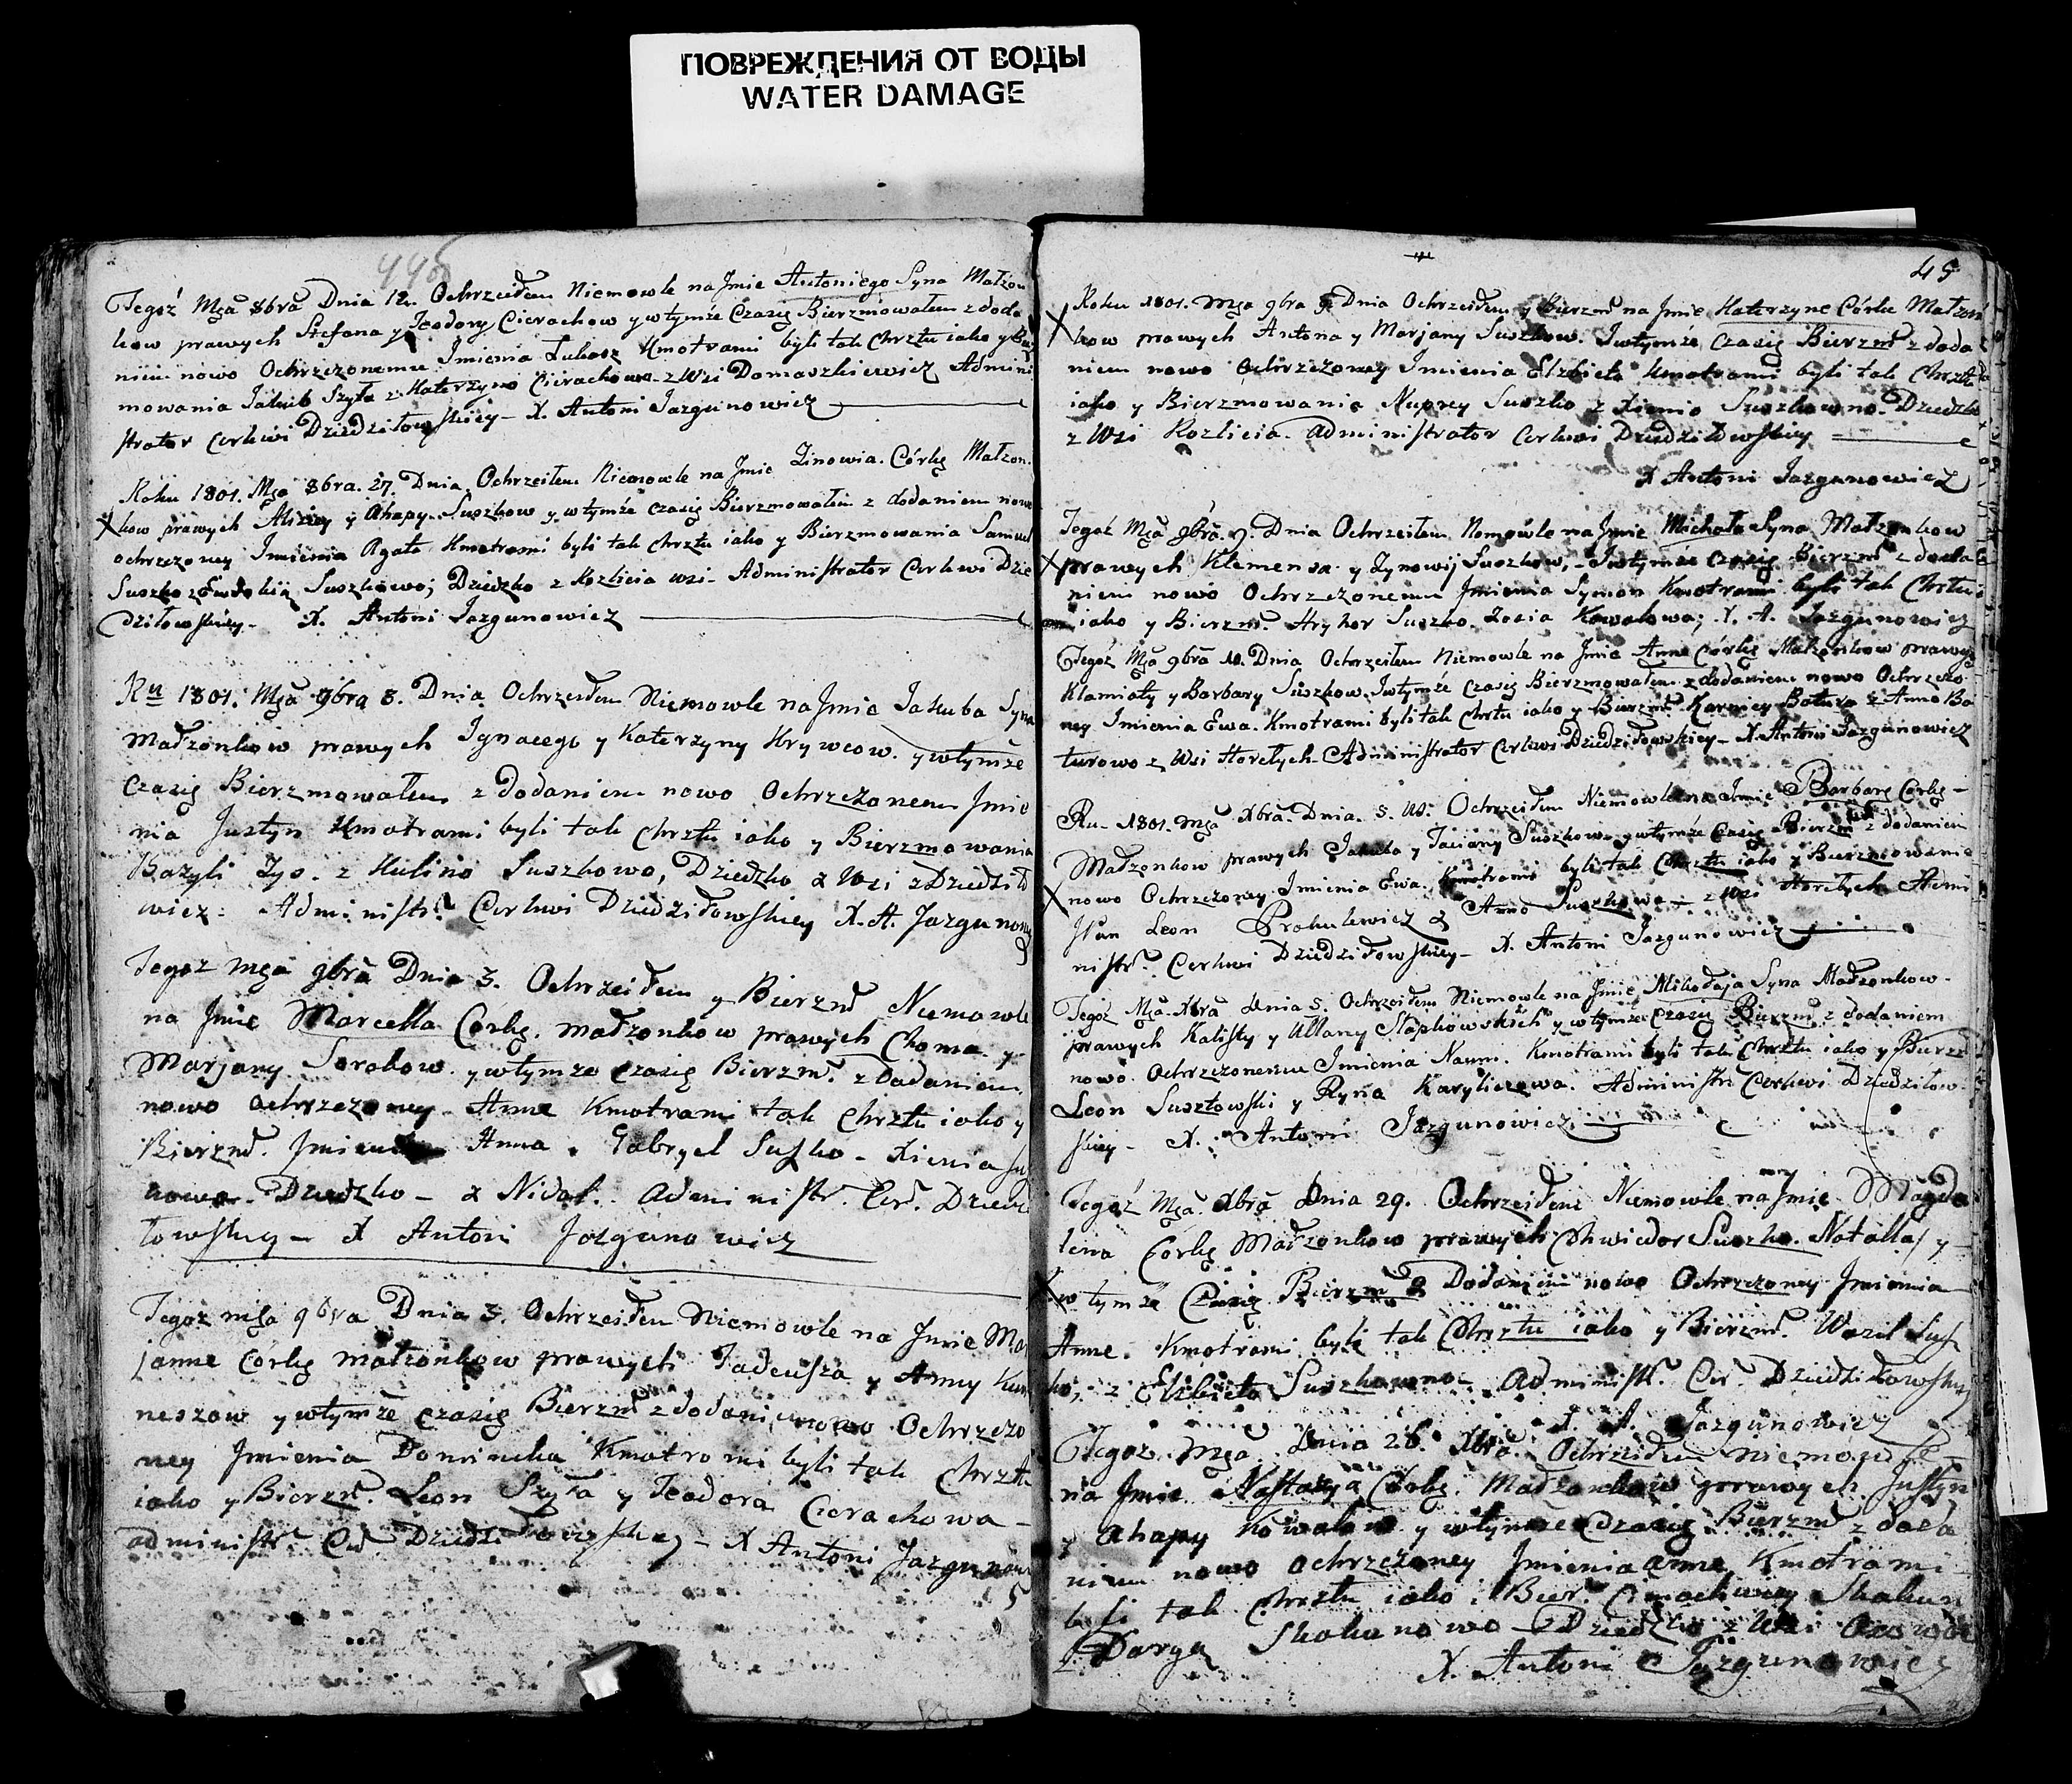 ПОВРЕЖДЕНИЯ ОТ ВОДЫ
WATER DAMAGE
Tegoż Mца 8bra Dnia 12. Ochrzciłem Niemowle na Jmie Antoniego Syna Małzon
kow prawych Stefana y Teodory Cierachow y wtymże Czasię Bierzmowałem z doda
niem nowo Ochrzczonemu Jmienia Łukasz Kmotrami byli tak Chrztu iako y Bierz
mowania Jakub Szyła z Katerzyno Cierachowa z Wsi Domaszkiewicz Admini
strator Cerkwi Dziedziłowskiey - X. Antoni Jazgunowicz
Roku 1801. Mца 8bra. 27. Dnia Ochrzciłem Niemowle na Jmie Zinowia. Córkę Małzon.
kow prawych y Ahapy Suszkow y wtymże czasię Bierzmowałem z dodaniem nowo
ochrzczoney Jmienia Agata Kmotrami byli tak chrztu iako y Bierzmowania Samuel
Suszko z Ewdokiią Suszkowo; Dziedzko z Kozlicia wsi - Administrator Cerkwi Dzie
dziłowskiey - X. Antoni Jazgunowicz
Ru 1801. Mца 9bra 8. Dnia Ochrzciłem Niemowle na Jmie Jakuba Syna
Małzonkow prawych Jgnacego y Katerzyny Krywcow. y wtymże
czasię Bierzmowałem z Dodaniem nowo Ochrzczonemu Jmie
nia Justyn Kmotrami byli tak chrztu iako y Bierzmowania
Bazyli Zys. z Kulino Suszkowo, Dziedzko z Wsi z Dziedziło
wicz: Administr. Cerkwi Dziedziłowskiey X. A. Jazgunow
Tegoz Mца 9bra Dnia 3. Ochrzciłem y Bierzm Niemowle
na Jmie Marcella Corkę. małzonkow prawych Choma y
Marjany Sorokow. y wtymze czasię Bierzm. z Dodaniem
nowo ochrzczoney Anne Kmotrami tak Chrztu iako y
Bierzm. Jmienia Anna. Gabryel Susko - Xienia
kowa - Dziedzko - z Nidal. Administr. Cer. Dziedzi
łowskiey - X Antoni Jazgunowicz
Tegoz mца 9bra Dnia 3. Ochrzciłem Niemowle na Jmie Mar
janne Córkę małzonkow prawych Tadeusza y Anny Kur
neszow y wtymże czasię Bierzm z dodaniem nowo Ochrzczo
ney Jmienia Dominika Kmotrami byli tak Chrztu
iako y Bierzm. Leon Szyła y Teodora Cierachowa -
administr. Cer Dziedziłowskiey - X Antoni Jazgunow
45
Roku 1801. Mца 9bra Dnia Ochrzciłem y Bierzm na Jmie Katerzyne Córke Małzon
kow prawych Antona y Marjany Suszkow. Jwtymże czasię Bierzm z doda
niem nowo Ochrzczoney Jmienia Elzbieta kmotrami byli tak Chrztu
iako y Bierzmowania Nuprey Suszko z Xienio Suszkowno. Dziedzko
z Wsi Kozlicia. Administrator Cerkwi Dziedziłowskiey
X Antoni Jazgunowicz
Tegoż Mца 9bra. 9. Dnia Ochrzciłem Nemowle na Jmie Michała Syna Małzonkow
prawych Klemensa y Zynowij Suszkow, - Jwtymże Czasię Bierzm z doda
niem nowo Ochrzczonemu Jmienia Symon Kmotrami byli tak Chrztu
iako y Bierzm. Hryhor Suszko. Zosia Kowalowa; X. A. Jazgunowicz
Tegoż Mца 9bra 10. Dnia Ochrzciłem Niemowle na Jmie Anna Córkę Małzonkow prawych
Kłamiaty y Barbary Suszkow. Jwtymże Czasię Bierzmowałem z dodaniem nowo Ochrzczo
ney Jmienia Ewa. Kmotrami byli tak Chrztu iako y Bierzm. Karniey Batura z Anna Ba
turowo z Wsi Horełych - Administrator Cerkwi Dziedziłowskiey - X. Antoni Jazgunowicz
Ru - 1801. Mца Xbra. Dnia. 5. Ochrzciłem Niemowle na Jmie Barbarę Corkę -
Małzonkow prawych Jakuba y Taciany Suszkow y wtymże Czasię Bierzm z dodaniem
nowo Ochrzczoney Jmienia Ewa. Kmotrami byli tak Chrztu iako y Bierzmowania
Leon Prokulewicz z Anno Suszkowo - z Wsi Horełych Admi
nistr. Cerkwi Dziedziłowskiey - X. Antoni Jazgunowicz
Tegoż Mца Xbra Dnia 5. Ochrzciłem Niemowle na Jmie Mikołaja Syna Małzonkow
prawych Kalisty y Ullany Słapkowskich y wtymże Czasię Bierzm z dodaniem
nowo Ochrzczonemu Jmienia Naum. Kmotrami byli tak Chrztu iako y Bierzm
Leon Suszłowski y Ryna Karyliczowa. Administr Cerkwi Dziedziłow
skiey - X. Antoni Jazgunowicz
Tegoż Mца Xbra Dnia 29. Ochrzciłem Niemowle na Jmie Magda
lena Corkę Małzonkow prawych Chwiedor Suszko. Natalla y
wtymże Czasię Bierzm z Dodaniem nowo Ochrzczoney Jmienia
Anne. Kmotrami byli tak Chrztu iako y Bierzm. Wasil Sus
ko, z Elzbieto Suszkowno - Administr. Cer. Dziedziłowskiey
X. A. Jazgunowicz
Tegoż Mца Dnia 26. Xbra Ochrzciłem niemowle
na Jmie Nastazya Córkę. Małzonkow prawych Justyn
y Ahapy Kowalow y wtymże Czasię Bierzm z doda
niem nowo ochrzczoney Jmienia anna Kmotrami
byli tak Chrztu iako i Bier. Cimochwey Skakun
z Darya Skakunowo - Dziedzko z Wsi
X. Antoni Jazgunowicz